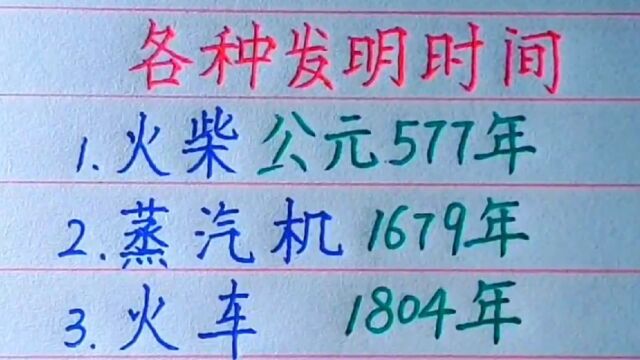 各种发明时间
1.火柴 公元577年
2.蒸汽机 1679年
3.火车 1804年